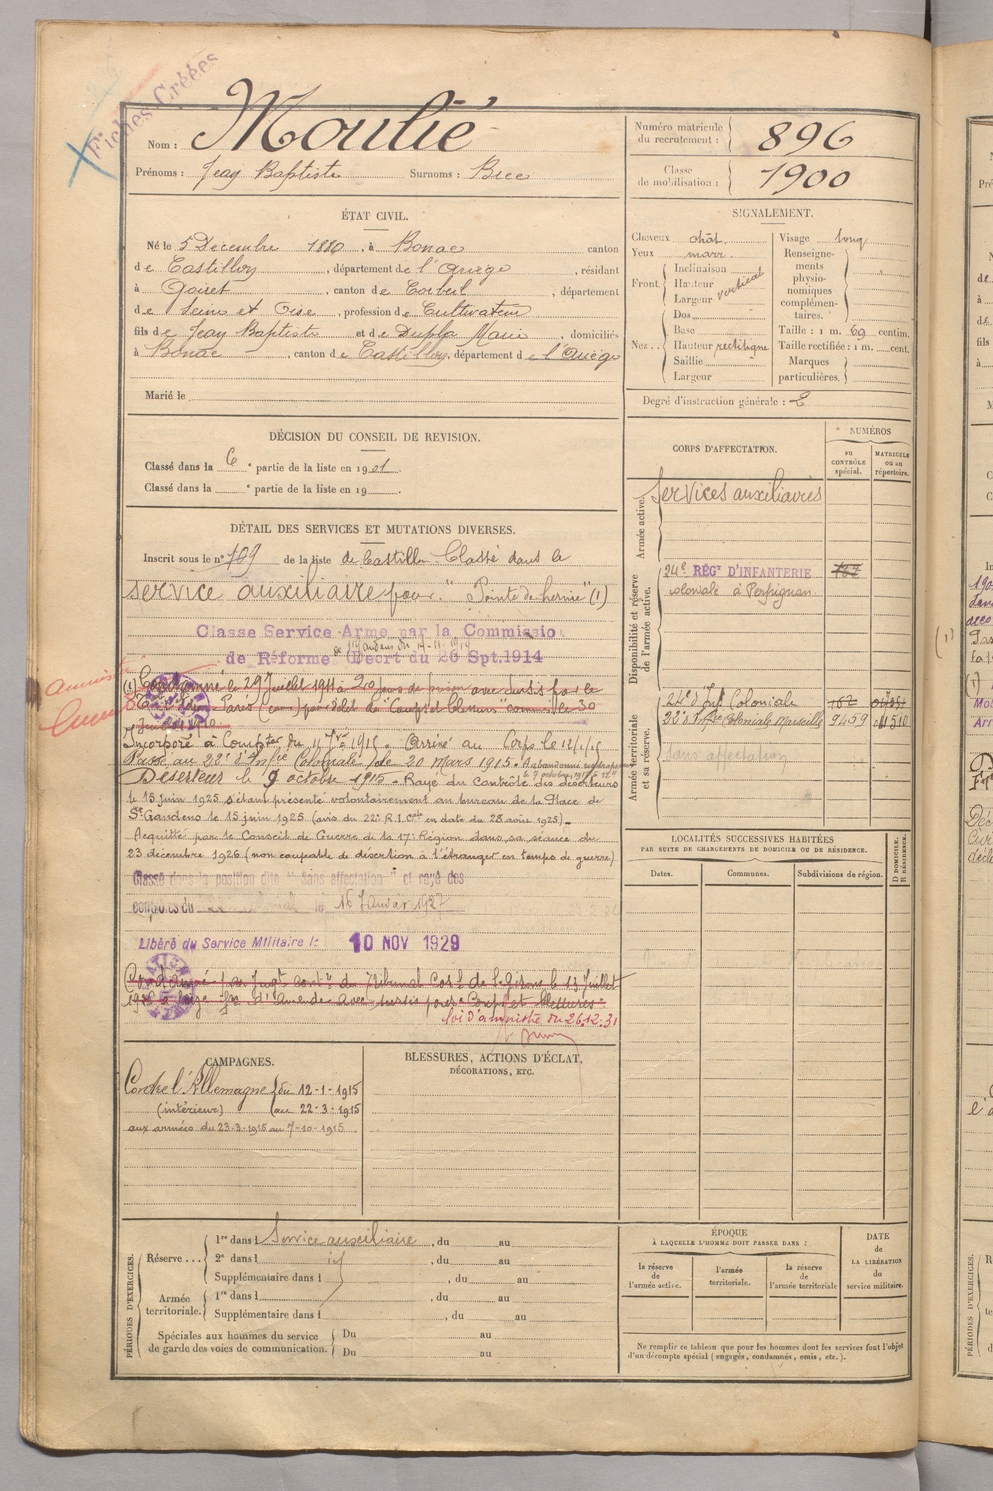 Fiches Créées
Nom : Moulié
Prénoms : Jean Baptiste Surnoms : Bree
Numéro matricule du recrutement : 896
Classe de mobilisation : 1900
ÉTAT CIVIL.
Né le 5 Décembre 1880, à Bonac canton
de Castillon, département de l'Ariège, résidant
à , canton de Corbeil, département
de Seine et Oise, profession de Cultivateur
fils de Jean Baptiste et de Dupla Marie, domiciliés
à Bonac, canton de Castillon, département de l'Ariège
Marié le
SIGNALEMENT.
Cheveux chât.
Yeux marr.
Front. Inclinaison
Hauteur vertical
Largeur
Nez. Dos
Base
Hauteur rectiligne
Saillie
Largeur
Visage long
Renseignements physionomiques complémentaires.
Taille : 1 m. 69 centim.
Taille rectifiée : 1 m. cent.
Marques particulières.
Degré d'instruction générale : 2
DÉCISION DU CONSEIL DE REVISION.
Classé dans la 6e partie de la liste en 1901.
Classé dans la e partie de la liste en 19
DÉTAIL DES SERVICES ET MUTATIONS DIVERSES.
Inscrit sous le n° 109 de la liste de Castillon Classé dans le
service auxiliaire pour "Pointe de hernie" (1)
Classe Service Arme par la Commissio
de Réforme (Décrt du 26 Spt.1914
amnistié
(1) Condamné le 29 Juillet 1911 à 20 jours de prison avec sursis par le
de Paris pour délit de "Coups et blessures" commis le 30
Incorporé à Compter du 11 1915. Arrivé au Corps le 12/1/15
Passé au 22e d'Infie Coloniale le 20 Mars 1915.
Déserteur le 9 octobre 1915. Rayé du Contrôle des déserteurs
le 15 juin 1925 s'étant présenté volontairement au bureau de la Place de
St Gaudens le 15 juin 1925 (avis du 22e R.I.Cal en date du 28 août 1925).
Acquitté par le Conseil de Guerre de la 17e Région dans sa séance du
23 décembre 1926 (non coupable de désertion à l'étranger en temps de guerre)
Classé dans la position dite "Sans affectation" et rayé des
contrôles du le 16 Janvier 1927
Libéré du Service Militaire le 10 NOV 1929
Condamné par Jugt contre du Tribunal Corl de St Girons le 13 Juillet
à seize frs d'Amende avec sursis pour Coups et blessures
loi d'amnistie du 26.12.31
CORPS D'AFFECTATION.
NUMÉROS
AU CONTRÔLE spécial.
MATRICULE ou au répertoire.
Armée active.
Services auxiliaires
Disponibilité et réserve de l'armée active.
24e RÉGt D'INFANTERIE
coloniale à Perpignan
Armée territoriale et sa réserve.
24e d'Inf Coloniale 162
22e d'Infie Coloniale Marseille 9459
Sans affectation
LOCALITÉS SUCCESSIVES HABITÉES
PAR SUITE DE CHANGEMENTS DE DOMICILE OU DE RÉSIDENCE.
Dates. Communes. Subdivisions de région. D DOMICILE. R RÉSIDENCE.
CAMPAGNES.
Contre l'Allemagne du 12-1-1915
(intérieur) au 22-3-1915
aux armées du 23-3-1915 au 7-10-1915
BLESSURES, ACTIONS D'ÉCLAT,
DÉCORATIONS, ETC.
PÉRIODES D'EXERCICES.
Réserve... 1re dans l Service auxiliaire, du au
2e dans l , du au
Supplémentaire dans l , du au
Armée territoriale. 1re dans l , du au
Supplémentaire dans l , du au
Spéciales aux hommes du service de garde des voies de communication. Du au
Du au
ÉPOQUE
À LAQUELLE L'HOMME DOIT PASSER DANS :
la réserve de l'armée active.
l'armée territoriale.
la réserve de l'armée territoriale
DATE de LA LIBÉRATION du service militaire.
Ne remplir ce tableau que pour les hommes dont les services font l'objet
d'un décompte spécial (engagés, condamnés, omis, etc.).